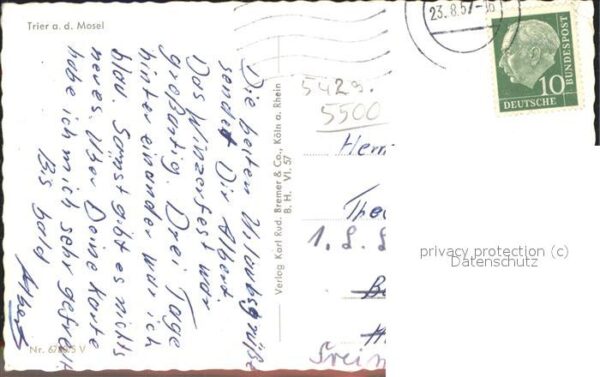 Trier a. d. Mosel
Die besten Urlaubsgrüße
sendet Dir Albert.
Das Winzerfest war
großartig. Drei Tage
hintereinander war ich
blau. Sonst gibt es nichts
neues. Über Deine Karte
habe ich mich sehr gefreut.
Bis bald
Albert
Verlag Karl Rud. Bremer & Co., Köln a. Rhein
B. H. VI. 57
23.8.57-16
10
DEUTSCHE
BUNDESPOST
5429.
5500
Herrn
Theo
1. L. L
privacy protection (c)
Datenschutz